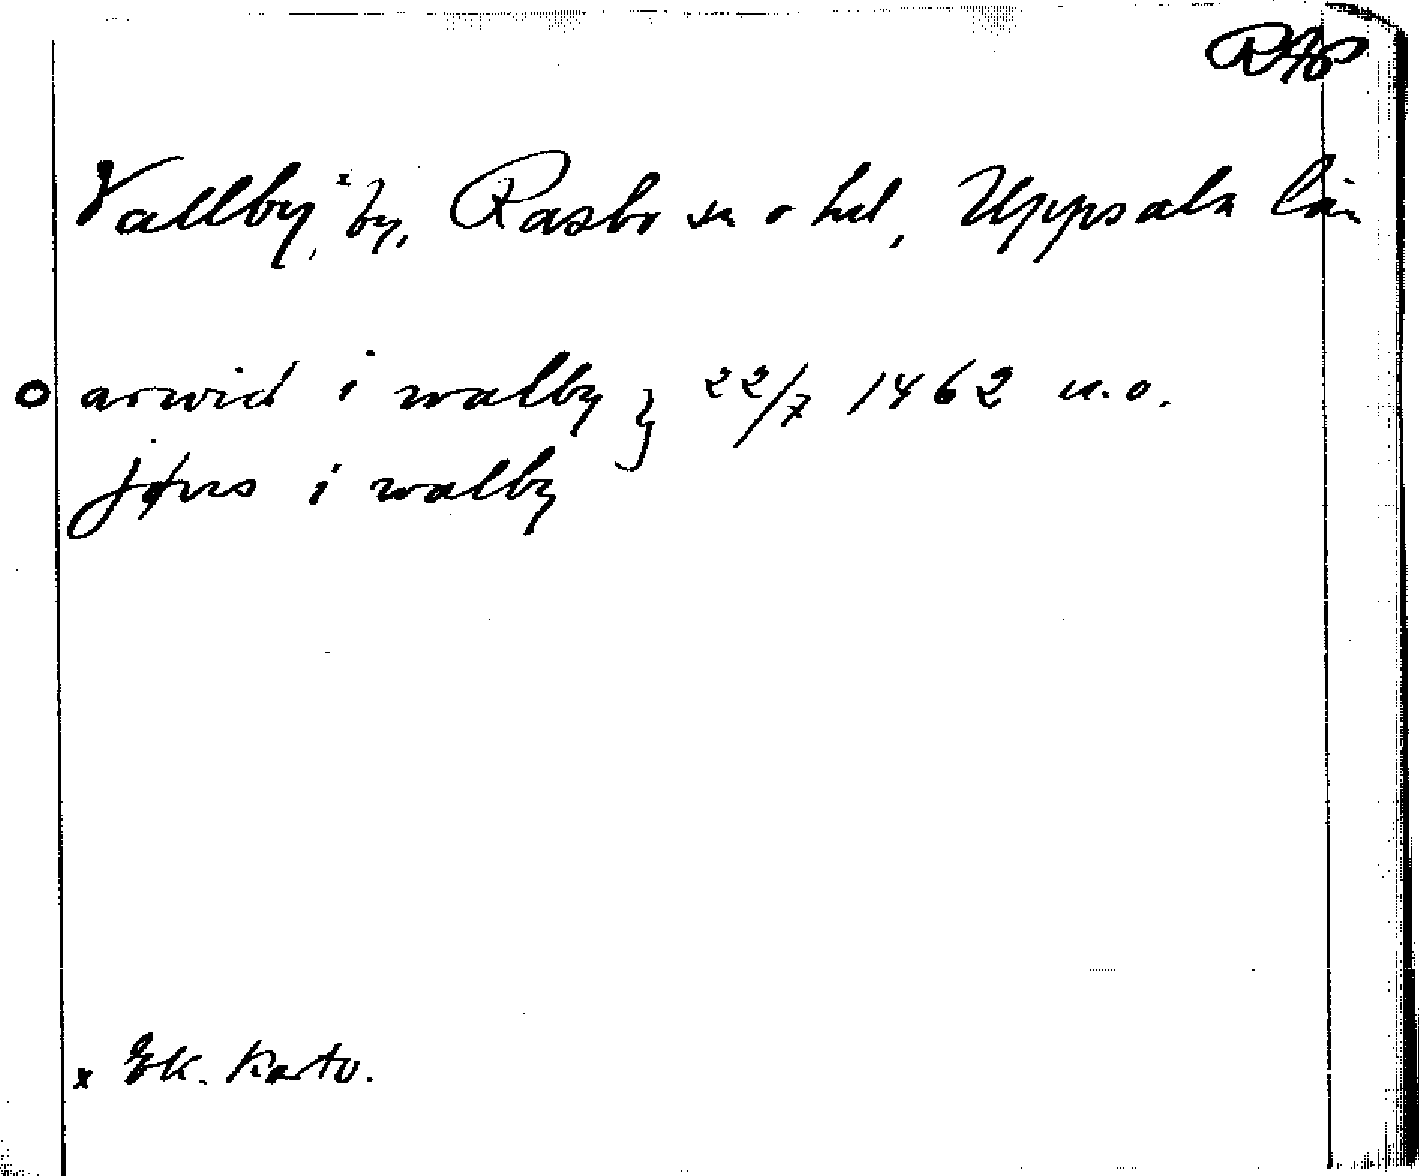 RAP
Vallby,ˣ by, Rasbo sn o hd, Uppsala län
o arwid i walby } 22/7 1462 u.o.
jøns i walby
x Ek. Karto.